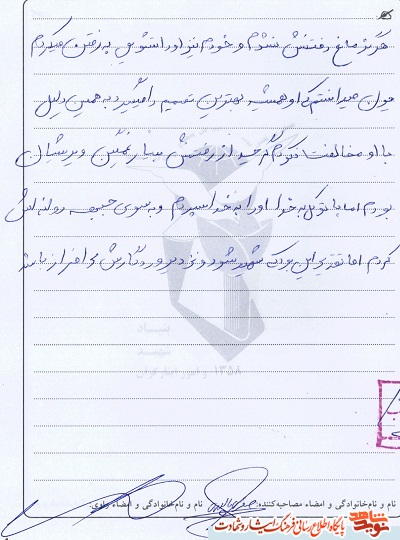 هرگز مانع رفتنش نشدم و خودم نیز او را تشویق به رفتن میکردم
چون میدانستم که او همیشه بهترین تصمیم را میگیرد به همین دلیل
با او مخالفت نکردم گرچه از رفتنش بسیار غمگین و پریشان
بودم اما با توکل به خدا او را به خدا سپردم و به سوی جبهه روانه اش
کردم اما تقدیر این بود که شهید شود و نزد پروردگارش سرافراز باشد
بنیاد
شهید
۱۳۵۸ و امور ایثارگران
نام و نام خانوادگی و امضاء مصاحبه کننده: نام و نام خانوادگی و امضاء راوی:
نوید شاهد
پایگاه اطلاع رسانی فرهنگ ایثار و شهادت